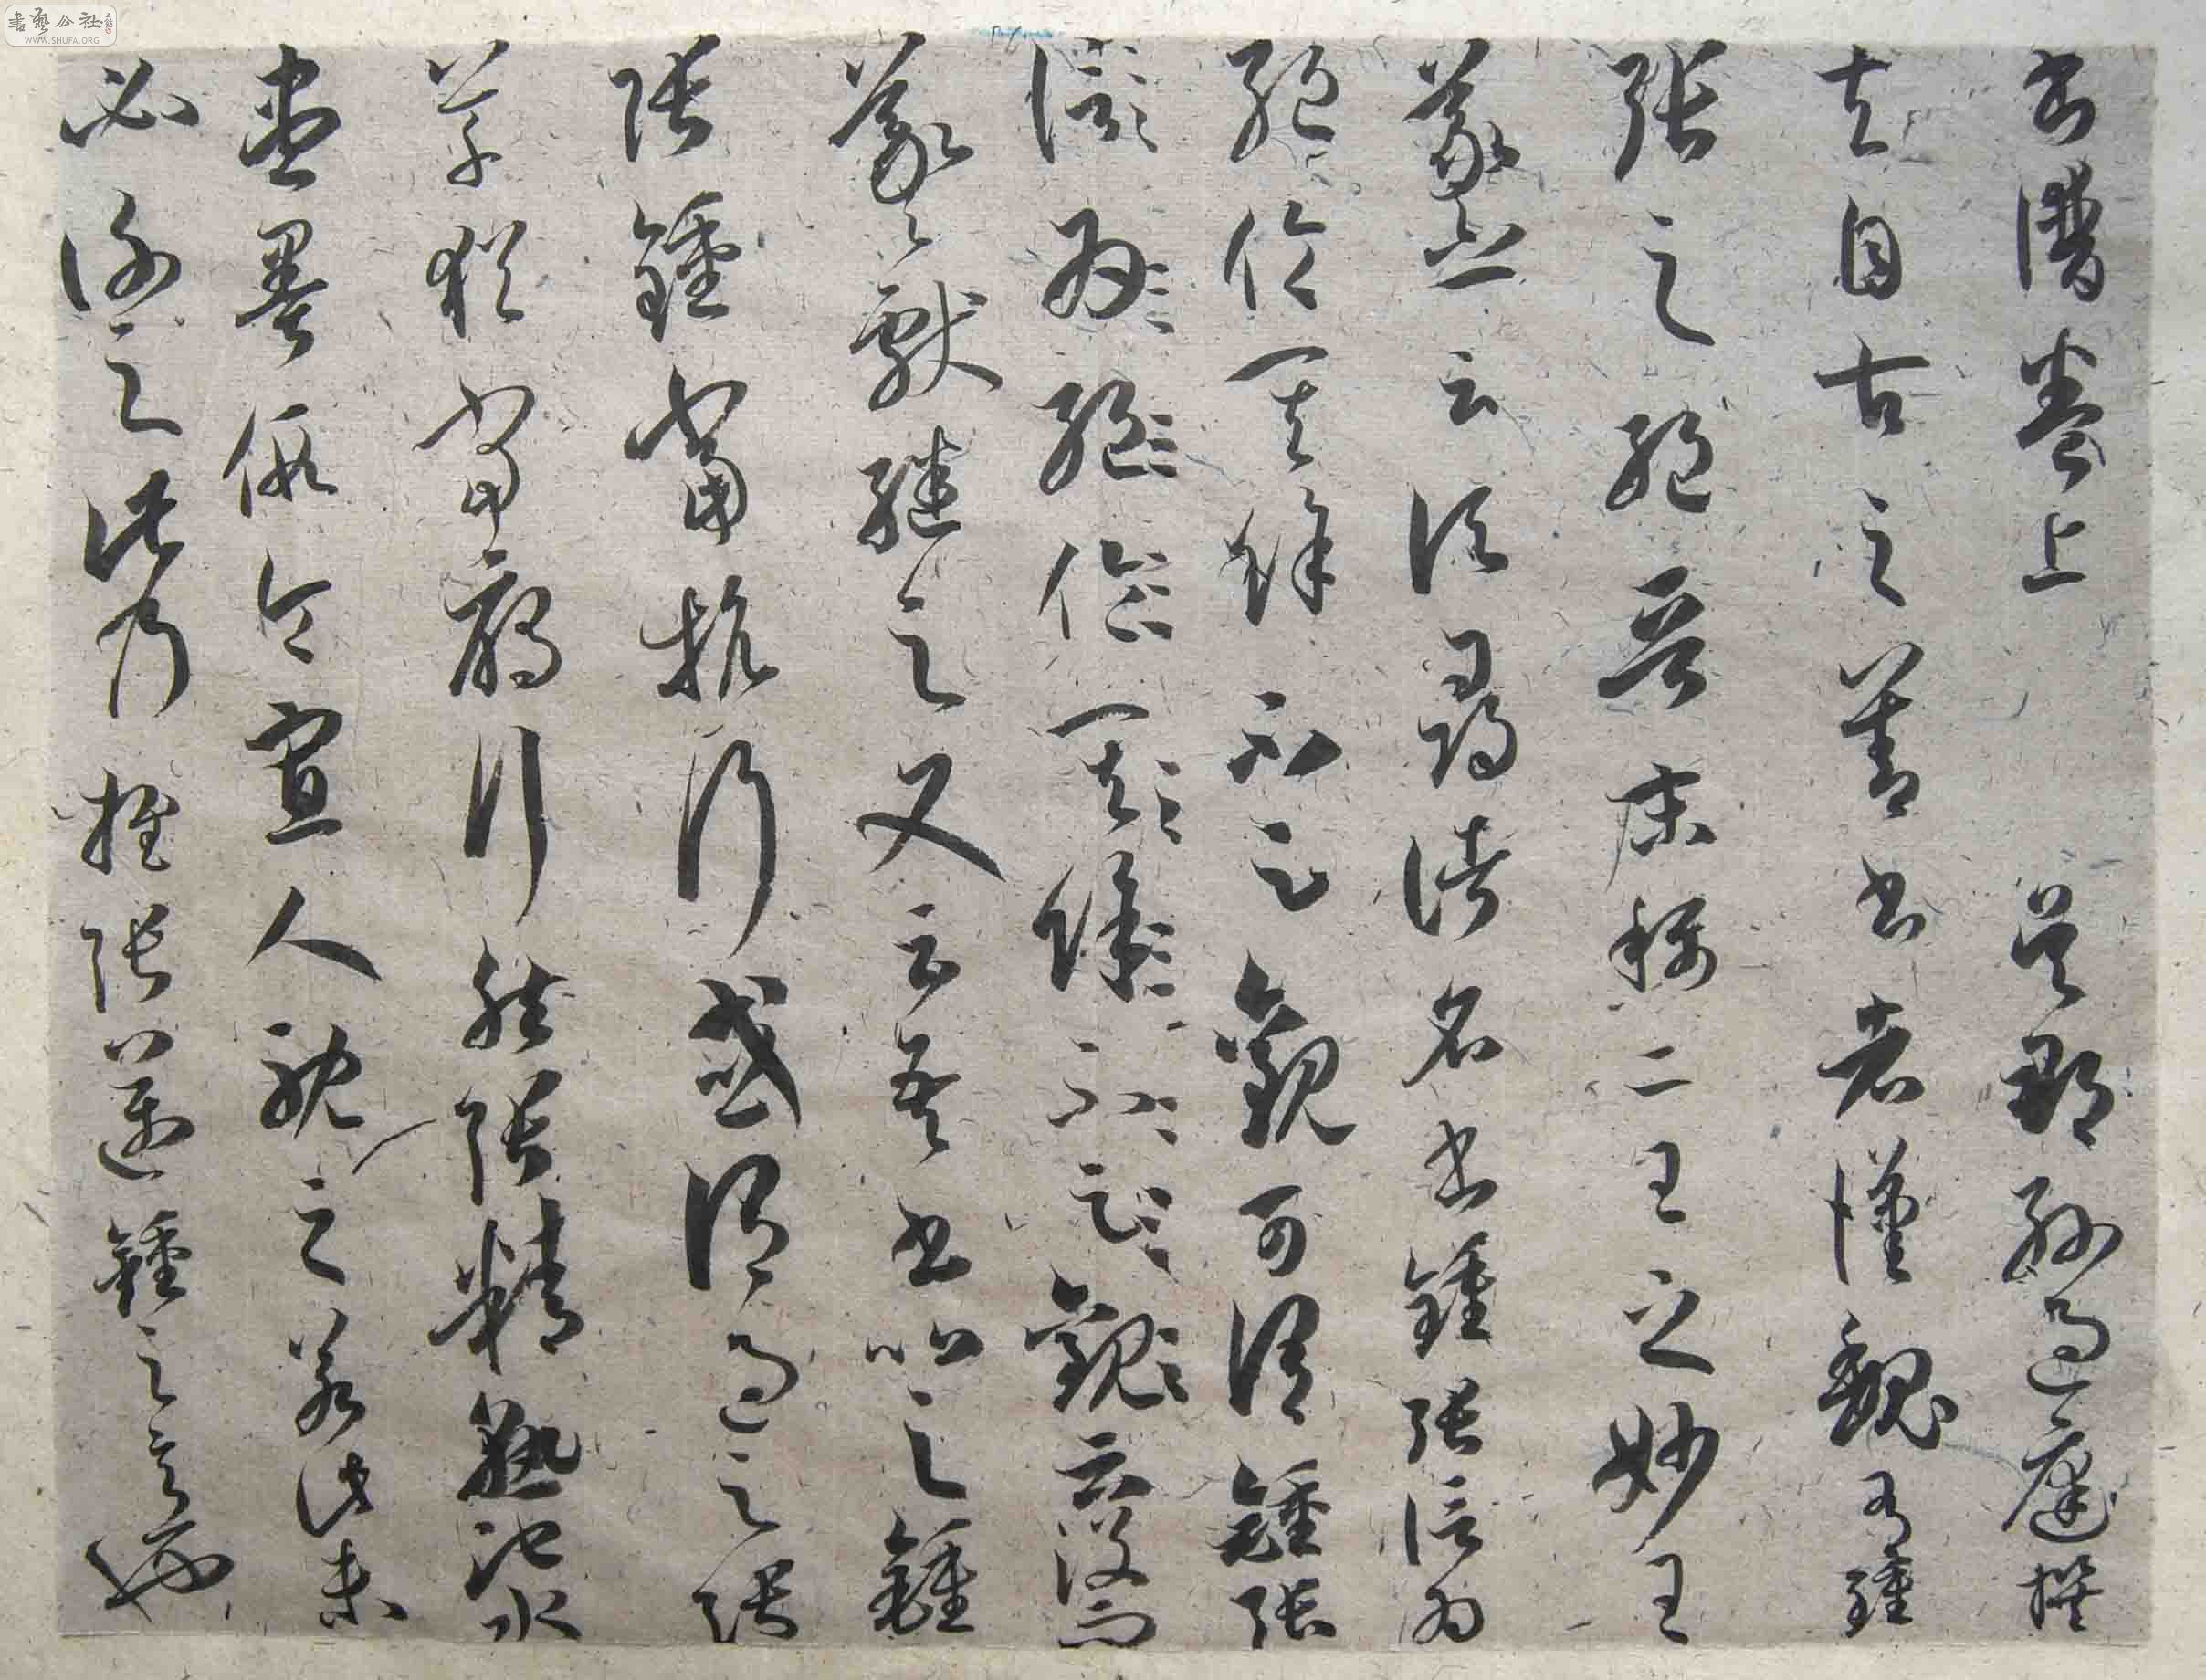 書譜卷上 吳郡孫過庭撰
夫自古之善書者漢魏有鍾
張之絕晉末稱二王之妙王
羲之云頃尋諸名書鍾張信為
絕倫其餘不足觀可謂鍾張
信為絕倫其餘不足觀云沒而
羲獻繼之又云吾書比之鍾
張鍾當抗行或謂過之張
草猶當雁行然張精熟池水
盡墨假令寡人耽之若此未
必謝之此乃推張邁鍾之意也
書藝公社
WWW.SHUFA.ORG